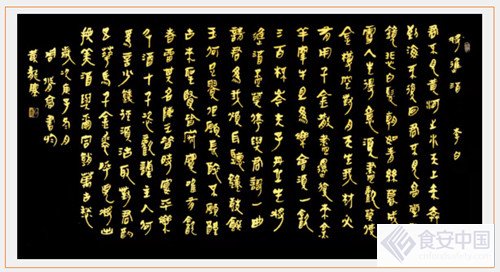 將進酒 李白
君不見黃河之水天上來奔
流到海不復回君不見高堂明
鏡悲白髮朝如青絲暮成
雪人生得意須盡歡莫使
金樽空對月天生我材必
有用千金散盡還復來烹
羊宰牛且為樂會須一飲
三百杯岑夫子丹丘生將
進酒君莫停與君歌一曲
請君為我傾耳聽鐘鼓饌
玉何足貴但願長醉不願醒
古來聖賢皆寂寞惟有飲
者留其名陳王昔時宴平樂
斗酒十千恣歡謔主人何
為言少錢徑須沽取對君酌
五花馬千金裘呼兒將出
換美酒與爾同銷萬古愁
歲次庚子
食安中国